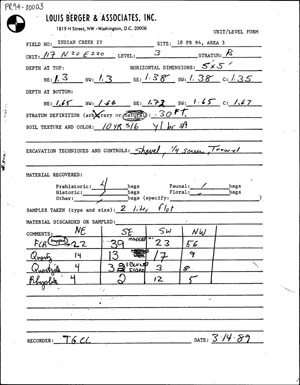 PR94-00003
LOUIS BERGER & ASSOCIATES, INC.
1819 H Street, NW · Washington, D.C. 20006
UNIT/LEVEL FORM
FIELD NO: INDIAN CREEK IV SITE: 18 PR 94, AREA 3
UNIT: 117 N20 E220 LEVEL: 3 STRATUM: B
DEPTH AT TOP: HORIZONTAL DIMENSIONS: 5x5'
NE: 1.3 SW: 1.3 SE: 1.38 SW: 1.38 C: 1.35
DEPTH AT BOTTOM:
NE: 1.65 SW: 1.66 SE: 1.72 SW: 1.65 C: 1.67
STRATUM DEFINITION (arbitrary or natural): .30 FT.
SOIL TEXTURE AND COLOR: 10YR 5/6 yl br
EXCAVATION TECHNIQUES AND CONTROLS: Shovel, 1/4 screen, Trowel
MATERIAL RECOVERED:
Prehistoric: 4 bags Faunal: / bags
Historic: / bags Floral: / bags
Other: / bags (specify:
MATERIAL DISCARDED OR SAMPLED:
SAMPLES TAKEN (type and size): 2 liter flot
COMMENTS: NE SE SW NW
FCR 22 39 23 56
Quartz 14 13 17 9
Quartzite 4 3 3 8
Rhyolite 4 2 12 5
RECORDER: TG CC DATE: 3/14/89